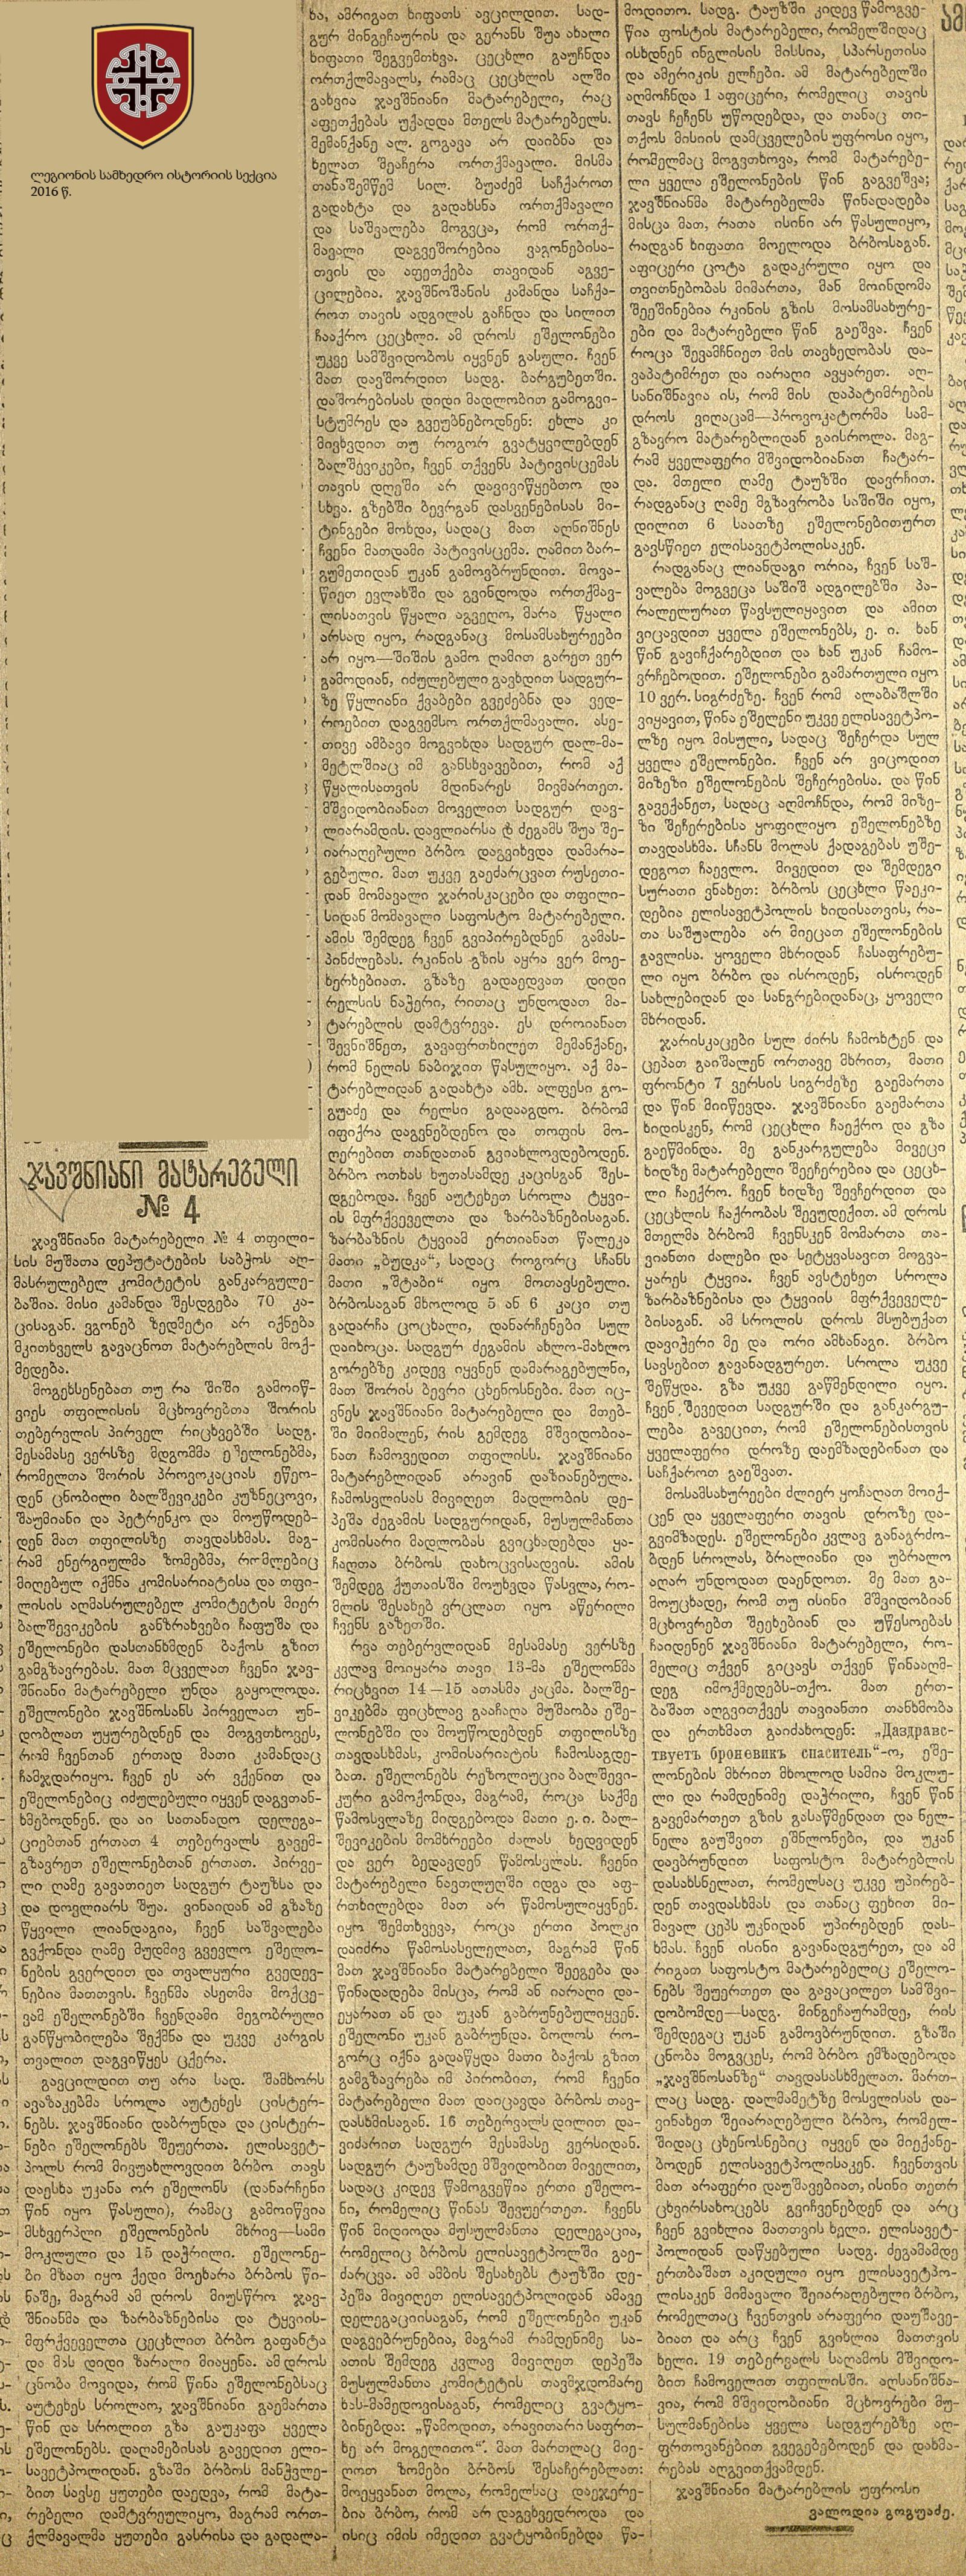 ლეგიონის სამხედრო ისტორიის სექცია
2016 წ.
ჯავშნიანი მატარებელი
№ 4
ჯავშნიანი მატარებელი № 4 თფილი-
სის მუშათა დეპუტატების საბჭოს აღ-
მასრულებელ კომიტეტის განკარგულე-
ბაშია. მისი კამანდა შესდგება 70 კა-
ცისაგან. ვგონებ ზედმეტი არ იქნება
მკითხველს გავაცნოთ მატარებლის მოქ-
მედება.
მოგეხსენებათ თუ რა შიში გამოიწ-
ვიეს თფილისის მცხოვრებთა შორის
თებერვლის პირველ რიცხვებში სადგ.
მესამასე ვერსზე მდგომმა ეშელონებმა,
რომელთა შორის პროვოკაციას ეწეო-
დენ ცნობილი ბალშევიკები კუზნეცოვი,
შაუმიანი და პეტრენკო და მოუწოდებ-
დენ მათ თფილისზე თავდასხმას. მაგ-
რამ ენერგიულმა ზომებმა, რომლებიც
მიღებულ იქმნა კომისარიატისა და თფი-
ლისის აღმასრულებელ კომიტეტის მიერ
ბალშევიკების განზრახვები ჩაფუშა და
ეშელონები დასთანხმდენ ბაქოს გზით
გამგზავრებას. მათ მცველათ ჩვენი ჯავ-
შნიანი მატარებელი უნდა გაყოლოდა.
ეშელონები ჯავშნოსანს პირველათ უნ-
დობლათ უყურებდნენ და მოგვთხოვეს,
რომ ჩვენთან ერთად მათი კამანდაც
ჩამჯდარიყო. ჩვენ ეს არ ვქენით და
ეშელონებიც იძულებული იყვენ დაგვთან-
ხმებოდნენ. და აი სათანადო დელეგა-
ციებთან ერთათ 4 თებერვალს გავემ-
გზავრეთ ეშელონებთან ერთათ. პირვე-
ლი ღამე გავათიეთ სადგურ ტაუზსა და
და დოვლიარს შუა. ვინაიდან ამ გზაზე
წყვილი ლიანდაგია, ჩვენ საშვალება
გვქონდა ღამე მუდმივ გვევლო ეშელო-
ნების გვერდით და თვალყური გვედევ-
ნებია მათთვის. ჩვენმა ასეთმა მოქცე-
ვამ ეშელონებში ჩვენდამი მეგობრული
განწყობილება შექმნა და უკვე კარგის
თვალით დაგვიწყეს ცქერა.
გავცილდით თუ არა სად. შამხორს
ავაზაკებმა სროლა აუტეხეს ცისტერ-
ნებს. ჯავშნიანი დაბრუნდა და ცისტერ-
ნები ეშელონებს შეუერთა. ელისავეტ-
პოლს რომ მივუახლოვდით ბრბო თავს
დაესხა უკანა ორ ეშელონს (დანარჩენი
წინ იყო წასული), რამაც გამოიწვია
მსხვერპლი ეშელონების მხრივ—სამი
მოკლული და 15 დაჭრილი. ეშელონე-
ბი მზათ იყო ქედი მოეხარა ბრბოს წი-
ნაშე, მაგრამ ამ დროს მიუსწრო ჯავ-
შნიანმა და ზარბაზნებისა და ტყვიის-
მფრქვეველთა ცეცხლით ბრბო გაფანტა
და მას დიდი ზარალი მიაყენა. ამ დროს
ცნობა მოვიდა, რომ წინა ეშელონებსაც
აუტეხეს სროლაო, ჯავშნიანი გაემართა
წინ და სროლით გზა გაუკაფა ყველა
ეშელონებს. დაღამებისას გავედით ელი-
სავეტპოლიდან. გზაში ბრბოს მანქვლე-
ბით სავსე ყუთები დაედვა, რომ მატა-
რებელი დამტვრეულიყო, მაგრამ ორთ-
ქლმავალმა ყუთები გასრისა და გადალა-
ხა, ამრიგათ ხიფათს ავცილდით. სად-
გურ მინგეჩაურის და გერანს შუა ახალი
ხიფათი შეგვემთხვა. ცეცხლი გაუჩნდა
ორთქლმავალს, რამაც ცეცხლის ალში
გახვია ჯავშნიანი მატარებელი, რაც
აფეთქებას უქადდა მთელს მატარებელს.
მემანქანე ალ. გოგავა არ დაიბნა და
ხელათ შეაჩერა ორთქმავალი. მისმა
თანაშემწემ სილ. ბუაძემ საჩქაროთ
გადახტა და გადახსნა ორთქმავალი
და საშვალება მოგვცა, რომ ორთქ-
მავალი დაგვეშორებია ვაგონებისა-
თვის და აფეთქება თავიდან აგვე-
ცილებია. ჯავშნოშანის კამანდა საჩქა-
როთ თავის ადგილას გაჩნდა და სილით
ჩააქრო ცეცხლი. ამ დროს ეშელონები
უკვე სამშვიდობოს იყვნენ გასული. ჩვენ
მათ დავშორდით სადგ. ბარგუბეთში.
დაშორებისას დიდი მადლობით გამოგვი-
სტუმრეს და გვეუბნებოდნენ: ეხლა კი
მივხვდით თუ როგორ გვატყვილებდენ
ბალშევიკები, ჩვენ თქვენს პატივისცემას
თავის დღეში არ დავივიწყებთო და
სხვა. გზებში ბევრგან დასვენებისას მი-
ტინგები მოხდა, სადაც მათ აღნიშნეს
ჩვენი მათდამი პატივისცემა. ღამით ბარ-
გუმეთიდან უკან გამოვბრუნდით. მოვა-
წიეთ ევლახში და გვინდოდა ორთქმავ-
ლისათვის წყალი აგვეღო, მარა წყალი
არსად იყო, რადგანაც მოსამსახურეები
არ იყო—შიშის გამო ღამით გარეთ ვერ
გამოდიან, იძულებული გავხდით სადგურ-
ზე წყლიანი ქვაბები გვეძებნა და ვედ-
როებით დაგვემსო ორთქლმავალი. ასე-
თივე ამბავი მოგვიხდა სადგურ დალ-მა-
მეტლშიაც იმ განსხვავებით, რომ აქ
წყალისათვის მდინარეს მივმართეთ.
მშვიდობიანათ მოველით სადგურ დავ-
ლიარამდის. დავლიარსა და ძეგამს შუა შე-
იარაღებული ბრბო დაგვიხვდა დამარა-
გებული. მათ უკვე გაეძარცვათ რუსეთი-
დან მომავალი ჯარისკაცები და თფილი-
სიდან მომავალი საფოსტო მატარებელი.
ამის შემდეგ ჩვენ გვიპირებდნენ გამას-
პინძლებას. რკინის გზის აყრა ვერ მოე-
ხერხებიათ. გზაზე გადაედვათ დიდი
რელსის ნაჭერი, რითაც უნდოდათ მა-
ტარებლის დამტვრევა. ეს დროიანათ
შევნიშნეთ, გავაფრთხილეთ მემანქანე,
რომ ნელის ნაბიჯით წასულიყო. აქ მა-
ტარებლიდან გადახტა ამხ. ალფესი გო-
გუაძე და რელსი გადააგდო. ბრბომ
იფიქრა დაგვნებდენო და თოფის მო-
ღერებით თანდათან გვიახლოვდებოდენ.
ბრბო ოთხას ხუთასამდე კაცისგან შეს-
დგებოდა. ჩვენ აუტეხეთ სროლა ტყვი-
ის მფრქვეველთა და ზარბაზნებისაგან.
ზარბაზნის ტყვიამ ერთიანათ წალეკა
მათი „ბუდკა“, სადაც როგორც სჩანს
მათი „შტაბი“ იყო მოთავსებული.
ბრბოსაგან მხოლოდ 5 ან 6 კაცი თუ
გადარჩა ცოცხალი, დანარჩენები სულ
დაიხოცა. სადგურ ძეგამის ახლო-მახლო
გორებზე კიდევ იყვნენ დამარაგებულნი,
მათ შორის ბევრი ცხენოსნები. მათ იც-
ვნეს ჯავშნიანი მატარებელი და მთებ-
ში მიიმალენ, რის გემდეგ მშვიდობია-
ნათ ჩამოვედით თფილისს. ჯავშნიანი
მატარებლიდან არავინ დაზიანებულა.
ჩამოსვლისას მივიღეთ მადლობის დე-
პეშა ძეგამის სადგურიდან, მუსულმანთა
კომისარი მადლობას გვიცხადებდა ყა-
ჩაღთა ბრბოს დახოცვისადვის. ამის
შემდეგ ქუთაისში მოუხვდა წასვლა, რო-
მლის შესახებ ვრცლათ იყო აწერილი
ჩვენს გაზეთში.
რვა თებერვლიდან მესამასე ვერსზე
კვლავ მოიყარა თავი 13-მა ეშელონმა
რიცხვით 14—15 ათასმა კაცმა. ბალშე-
ვიკებმა ფიცხლავ გააჩაღა მუშაობა ეშე-
ლონებში და მოუწოდებდენ თფილისზე
თავდასხმას, კომისარიატის ჩამოსაგდე-
ბათ. ეშელონებს რეზოლიუცია ბალშევი-
კური გამოქონდა, მაგრამ, როცა საქმე
წამოსვლაზე მიდგებოდა მათი ე. ი. ბალ-
შევიკების მომხრეები ძალას ხედვიდენ
და ვერ ბედავდენ წამოსვლას. ჩვენი
მატარებელი ნავთლუღში იდგა და აფ-
რთხილებდა მათ არ წამოსულიყვნენ.
იყო შემთხვევა, როცა ერთი პოლკი
დაიძრა წამოსასვლელათ, მაგრამ წინ
მათ ჯავშნიანი მატარებელი შეეგება და
წინადადება მისცა, რომ ან იარაღი და-
ეყარათ ან და უკან გაბრუნებულიყვენ.
ეშელონი უკან გაბრუნდა. ბოლოს რო-
გორც იქნა გადაწყდა მათი ბაქოს გზით
გამგზავრება იმ პირობით, რომ ჩვენი
მატარებელი მათ დაიცავდა ბრბოს თავ-
დასხმისაგან. 16 თებერვალს დილით და-
ვიძარით სადგურ მესამასე ვერსიდან.
სადგურ ტაუზამდე მშვიდობით მიველით,
სადაც კიდევ წამოგვეწია ერთი ეშელო-
ნი, რომელიც წინას შევუერთეთ. ჩვენს
წინ მიდიოდა მუსულმანთა დელეგაცია,
რომელიც ბრბოს ელისავეტპოლში გაე-
ძარცვა. ამ ამბის შესახებს ტაუზში დე-
პეშა მივიღეთ ელისავეტპოლიდან ამავე
დელეგაციისაგან, რომ ეშელონები უკან
დაგვებრუნებია, მაგრამ რამდენიმე სა-
ათის შემდეგ კვლავ მივიღეთ დეპეშა
მუსულმანთა კომიტეტის თავმჯდომარე
ხას-მამედოვისაგან, რომელიც გვატყო-
ბინებდა: „წამოდით, არავითარი საფრთ-
ხე არ მოგელითო“. მათ მართლაც მიე-
ღოთ ზომები ბრბოს შესაჩერებლათ:
მოეყვანათ მოლა, რომელსაც დაეჯერე-
ბია ბრბო, რომ არ დაგვხვედროდა და
ისიც იმის იმედით გვატყობინებდა წა-
მოდითო. სადგ. ტაუზში კიდევ წამოგვე-
წია ფოსტის მატარებელი, რომელშიდაც
ისხდნენ ინგლისის მისსია, სპარსეთისა
და ამერიკის ელჩები. ამ მატარებელში
აღმოჩნდა 1 აფიცერი, რომელიც თავის
თავს ჩეჩენს უწოდებდა, და თანაც თი-
თქოს მისიის დამცველების უფროსი იყო,
რომელმაც მოგვთხოვა, რომ მატარებე-
ლი ყველა ეშელონების წინ გაგვეშვა;
ჯავშნიანმა მატარებელმა წინადადება
მისცა მათ, რათა ისინი არ წასულიყო,
რადგან ხიფათი მოელოდა ბრბოსაგან.
აფიცერი ცოტა გადაკრული იყო და
თვითნებობას მიმართა, მან მოინდომა
შეეშინებია რკინის გზის მოსამსახურე-
ები და მატარებელი წინ გაეშვა. ჩვენ
როცა შევამჩნიეთ მის თავხედობას და-
ვაპატიმრეთ და იარაღი ავყარეთ. აღ-
სანიშნავია ის, რომ მის დაპატიმრების
დროს ვიღაცამ—პროვოკატორმა სამ-
გზავრო მატარებლიდან გაისროლა. მაგ-
რამ ყველაფერი მშვიდობიანათ ჩატარ-
და. მთელი ღამე ტაუზში დავრჩით.
რადგანაც ღამე მგზავრობა საშიში იყო,
დილით 6 საათზე ეშელონებითურთ
გავსწიეთ ელისავეტპოლისაკენ.
რადგანაც ლიანდაგი ორია, ჩვენ საშ-
ვალება მოგვეცა საშიშ ადგილებში პა-
რალელურათ წავსულიყავით და ამით
ვიცავდით ყველა ეშელონებს, ე. ი. ხან
წინ გავიჩქარებდით და ხან უკან ჩამო-
ვრჩებოდით. ეშელონები გამართული იყო
10 ვერ. სიგრძეზე. ჩვენ რომ ალაბაშლში
ვიყავით, წინა ეშელენი უკვე ელისავეტპო-
ლზე იყო მისული, სადაც შეჩერდა სულ
ყველა ეშელონები. ჩვენ არ ვიცოდით
მიზეზი ეშელონების შეჩერებისა. და წინ
გავექანეთ, სადაც აღმოჩნდა, რომ მიზე-
ზი შეჩერებისა ყოფილიყო ეშელონებზე
თავდასხმა. სჩანს მოლას ქადაგებას უშე-
დეგოთ ჩაევლო. მივედით და შემდეგი
სურათი ვნახეთ: ბრბოს ცეცხლი წაეკი-
დებია ელისავეტპოლის ხიდისათვის, რა-
თა საშუალება არ მიეცათ ეშელონების
გავლისა. ყოველი მხრიდან ჩასაფრებუ-
ლი იყო ბრბო და ისროდენ, ისროდენ
სახლებიდან და სანგრებიდანაც, ყოველი
მხრიდან.
ჯარისკაცები სულ ძირს ჩამოხტენ და
ცეპათ გაიშალენ ორთავე მხრით, მათი
ფრონტი 7 ვერსის სიგრძეზე გაემართა
და წინ მიიწევდა. ჯავშნიანი გაემართა
ხიდისკენ, რომ ცეცხლი ჩაექრო და გზა
გაეწმინდა. მე განკარგულება მივეცი
ხიდზე მატარებელი შეეჩერებია და ცეცხ-
ლი ჩაექრო. ჩვენ ხიდზე შევჩერდით და
ცეცხლის ჩაქრობას შევუდექით. ამ დროს
მთელმა ბრბომ ჩვენსკენ მომართა თა-
ვიანთი ძალები და სეტყვასავით მოგვა-
ყარეს ტყვია. ჩვენ ავსტეხეთ სროლა
ზარბაზნებისა და ტყვიის მფრქვეველე-
ბისაგან. ამ სროლის დროს მსუბუქათ
დავიჭერი მე და ორი ამხანაგი. ბრბო
სავსებით გავანადგურეთ. სროლა უკვე
შეწყდა. გზა უკვე გაწმენდილი იყო.
ჩვენ შევედით სადგურში და განკარგუ-
ლება გავეცით, რომ ეშელონებისთვის
ყველაფერი დროზე დაემზადებინათ და
საჩქაროთ გაეშვათ.
მოსამსახურეები ძლიერ ყოჩაღათ მოიქ-
ცენ და ყველაფერი თავის დროზე და-
გვიმზადეს. ეშელონები კვლავ განაგრძო-
ბდენ სროლას, ბრალიანი და უბრალო
აღარ უნდოდათ დაენდოთ. მე მათ გა-
მოუცხადე, რომ თუ ისინი მშვიდობიან
მცხოვრებთ შეეხებიან და უწესოებას
ჩაიდენენ ჯავშნიანი მატარებელი, რო-
მელიც თქვენ გიცავს თქვენ წინააღმ-
დეგ იმოქმედებს-თქო. მათ ერთ-
ბაშათ აღგვითქვეს თავიანთი თანხმობა
და ერთხმათ გაიძახოდენ: „Даздравс-
твуетъ броневикъ спаситель“-ო, ეშე-
ლონების მხრით მხოლოდ სამია მოკლუ-
ლი და რამდენიმე დაჭრილი, ჩვენ წინ
გავემართეთ გზის გასაწმენდათ და ნელ-
ნელა გაუშვით ეშნლონები, და უკან
დავბრუნდით საფოსტო მატარებლის
დასახსნელათ, რომელსაც უკვე უპირებ-
დენ თავდასხმას და თანაც ფეხით მი-
მავალ ცეპს უკნიდან უპირებდენ დას-
ხმას. ჩვენ ისინი გავანადგურეთ, და ამ
რიგათ საფოსტო მატარებელიც ეშელო-
ნებს შეუერთეთ და გავაცილეთ სამშვი-
დობომდე—სადგ. მინგეჩაურამდე, რის
შემდეგაც უკან გამოვბრუნდით. გზაში
ცნობა მოგვცეს, რომ ბრბო ემზადებოდა
„ჯავშნოსანზე“ თავდასასხმელათ. მართ-
ლაც სადგ. დალმამეტზე მოსვლისას და-
ვინახეთ შეიარაღებული ბრბო, რომელ-
შიდაც ცხენოსნებიც იყვენ და მიექანე-
ბოდენ ელისავეტპოლისაკენ. ჩვენთვის
მათ არაფერი დაუშავებიათ, ისინი თეთრ
ცხვირსახოცებს გვიჩვენებდენ და არც
ჩვენ გვიხლია მათთვის ხელი. ელისავეტ-
პოლიდან დაწყებული სადგ. ძეგამამდე
ერთბაშათ აკიდული იყო ელისავეტპო-
ლისაკენ მიმავალი შეიარაღებული ბრბო,
რომელთაც ჩვენთვის არაფერი დაუშავე-
ბიათ და არც ჩვენ გვიხლია მათთვის
ხელი. 19 თებერვალს საღამოს მშვიდო-
ბით ჩამოველით თფილისში. აღსანიშნა-
ვია, რომ მშვიდობიანი მცხოვრები მუ-
სულმანებისა ყველა სადგურებზე აღ-
ფრთოვანებით გვეგებებოდენ და დახმა-
რებას აღგვითქვამდენ.
ჯავშნიანი მატარებლის უფროსი
ვალოდია გოგუაძე.